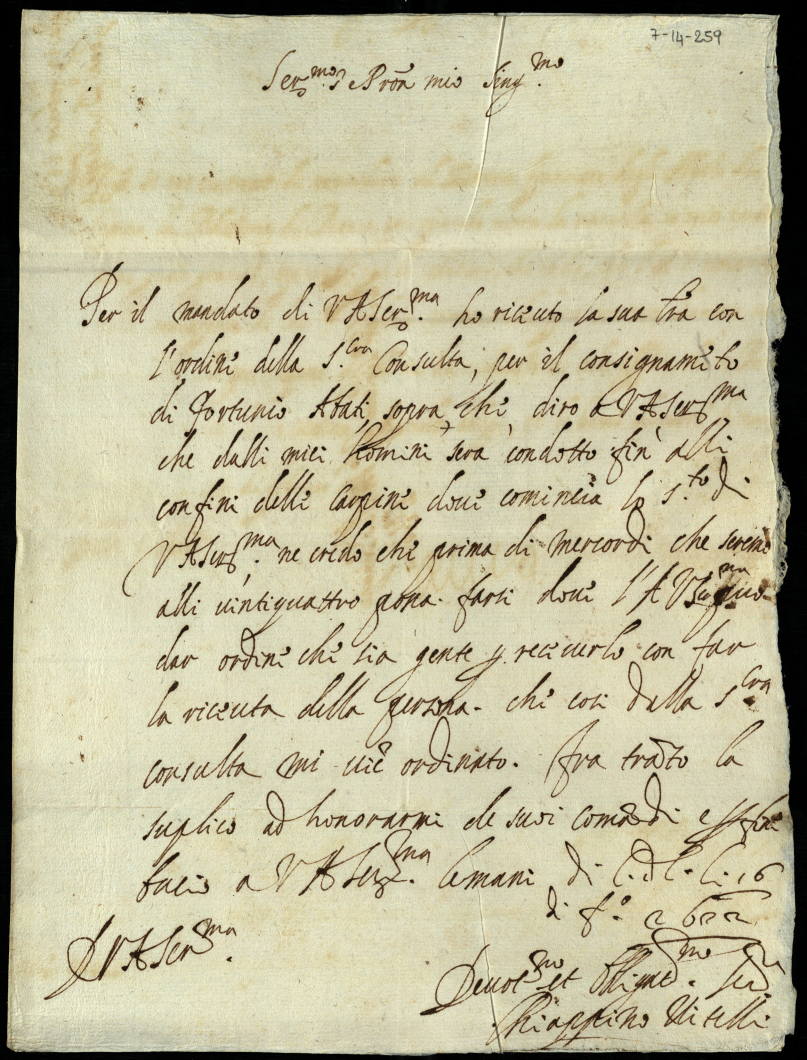 7-14-259
Ser.mo S.e Pron mio Sing.mo
Per il mandato di V A Ser.ma ho riceuto la sua lra con
l'ordine della S.cra Consulta, per il consignamēto
di Fortunio Abati, sopra che, diro a V A Ser.ma
che dalli miei homini sera condotto fin alli
confini delle Carpine doue comincia lo s.to di
V A Ser.ma ne credo che prima di mercordi che sereno
alli uintiquattro possa farsi doue l'A V Ser.ma
dar ordine che sia gente p receuerlo con far
la riceuta della persona. che cosi dalla S.cra
consulta mi uiē ordinato. fra trāto la
suplico ad honorarmi de suoi comādi e p fine
bacio a V A Ser.ma le mani di C. di C. li. 16
di f.o 1622
D V A Ser.ma
Deuot.mo et Obligat.mo Ser.
Chiappino Vitelli